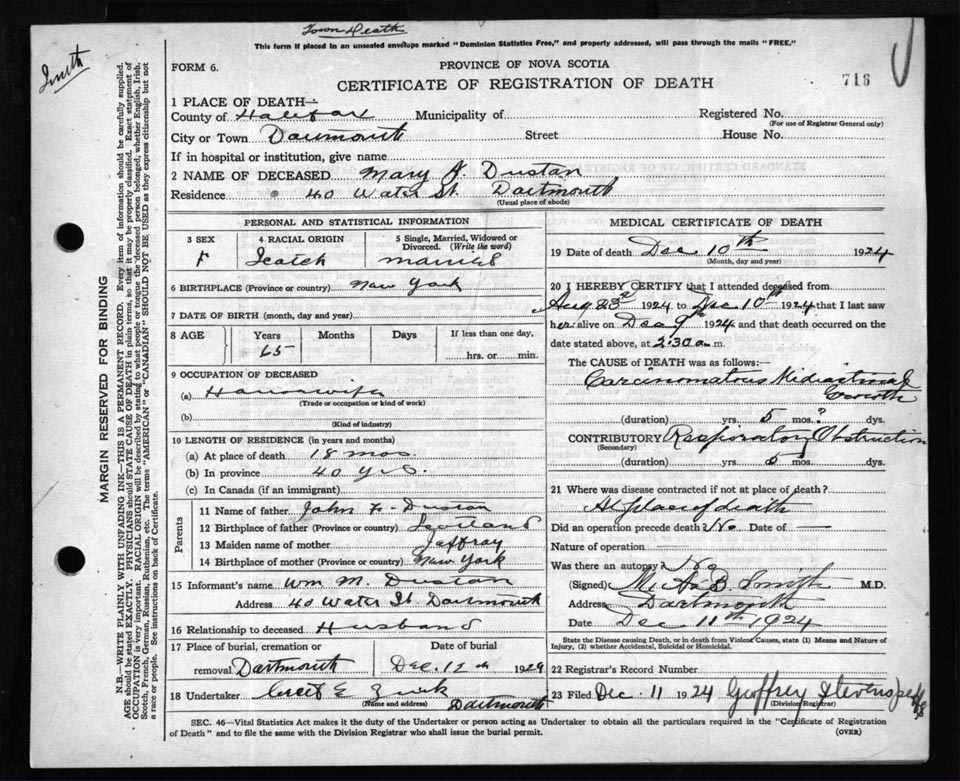 Town Death
This form if placed in an unsealed envelope marked "Dominion Statistics Free," and properly addressed, will pass through the mails "FREE."
Smith
FORM 6.
PROVINCE OF NOVA SCOTIA
CERTIFICATE OF REGISTRATION OF DEATH
716
1 PLACE OF DEATH—
County of Halifax Municipality of Registered No.
(For use of Registrar General only)
City or Town Dartmouth Street House No.
If in hospital or institution, give name
2 NAME OF DECEASED Mary J. Dustan
Residence 40 Water St. Dartmouth
(Usual place of abode)
MARGIN RESERVED FOR BINDING
N.B.—WRITE PLAINLY WITH UNFADING INK—THIS IS A PERMANENT RECORD. Every item of information should be carefully supplied.
AGE should be stated EXACTLY. PHYSICIANS should STATE CAUSE OF DEATH in plain terms, so that it may be properly classified. Exact statement of
OCCUPATION is very important. RACIAL ORIGIN will be described by stating to what people or tongue the deceased person belonged, whether English, Irish,
Scotch, French, German, Russian, Ruthenian, etc. The terms "AMERICAN" or "CANADIAN" SHOULD NOT BE USED as they express citizenship but not
a race or people. See instructions on back of Certificate.
PERSONAL AND STATISTICAL INFORMATION
3 SEX
F
4 RACIAL ORIGIN
Scotch
5 Single, Married, Widowed or
Divorced. (Write the word)
married
6 BIRTHPLACE (Province or country) New York
7 DATE OF BIRTH (month, day and year)
8 AGE Years Months Days If less than one day,
65 hrs. or min.
9 OCCUPATION OF DECEASED
(a) Housewife
(Trade or occupation or kind of work)
(b)
(Kind of industry)
10 LENGTH OF RESIDENCE (in years and months)
(a) At place of death 18 mos.
(b) In province 40 yrs.
(c) In Canada (if an immigrant)
Parents
11 Name of father John F. Dustan
12 Birthplace of father (Province or country) Scotland
13 Maiden name of mother Jaffray
14 Birthplace of mother (Province or country) New York
15 Informant's name Wm M. Dustan
Address 40 Water St. Dartmouth
16 Relationship to deceased Husband
17 Place of burial, cremation or Date of burial
removal Dartmouth Dec. 12th 1924
18 Undertaker
(Name and address) Dartmouth
MEDICAL CERTIFICATE OF DEATH
19 Date of death Dec 10th 1924
(Month, day and year)
20 I HEREBY CERTIFY that I attended deceased from
Aug 23rd 1924 to Dec 10th 1924 that I last saw
her alive on Dec 9th 1924 and that death occurred on the
date stated above, at 2:30 a.m.
The CAUSE of DEATH was as follows:
Carcinomatous Midiastinal
Growth
(duration) yrs. 5 mos? dys.
CONTRIBUTORY Respiratory Obstruction
(Secondary)
(duration) yrs. 5 mos. dys.
21 Where was disease contracted if not at place of death?
At place of death
Did an operation precede death? No Date of —
Nature of operation
Was there an autopsy? No
(Signed) M. A. B. Smith M.D.
Address Dartmouth
Date Dec 11th 1924
State the Disease causing Death, or in death from Violent Causes, state (1) Means and Nature of
Injury, (2) whether Accidental, Suicidal or Homicidal.
22 Registrar's Record Number
23 Filed Dec. 11 1924 Geoffrey Stevens
(Division Registrar)
SEC. 46—Vital Statistics Act makes it the duty of the Undertaker or person acting as Undertaker to obtain all the particulars required in the "Certificate of Registration
of Death" and to file the same with the Division Registrar who shall issue the burial permit.
(OVER)